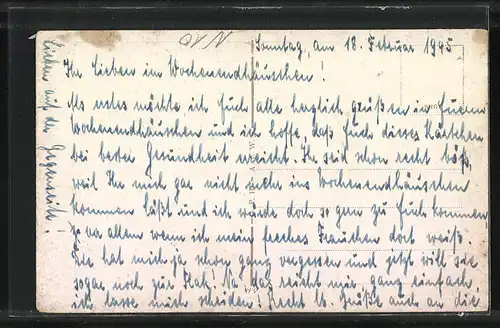 Sonntag, am 18. Februar 1945
Ihr Lieben im Wochenendhäuschen!
Als erstes möchte ich Euch alle herzlich grüßen in Eurem
Wochenendhäuschen und ich hoffe, daß Euch dieses Kärtchen
bei bester Gesundheit erreicht. Ihr seid schon recht böse,
weil Ihr mich gar nicht mehr ins Wochenendhäuschen
kommen laßt und ich würde doch so gern zu Euch kommen
so vor allem wenn ich mein freches Frauchen dort weiß.
Sie hat mich ja schon ganz vergessen und jetzt will sie
sogar noch zur Flak! Na das reicht mir, ganz einfach
ich lasse mich scheiden! Recht b. Grüße auch an die
Lücken auf der Gegenseite!